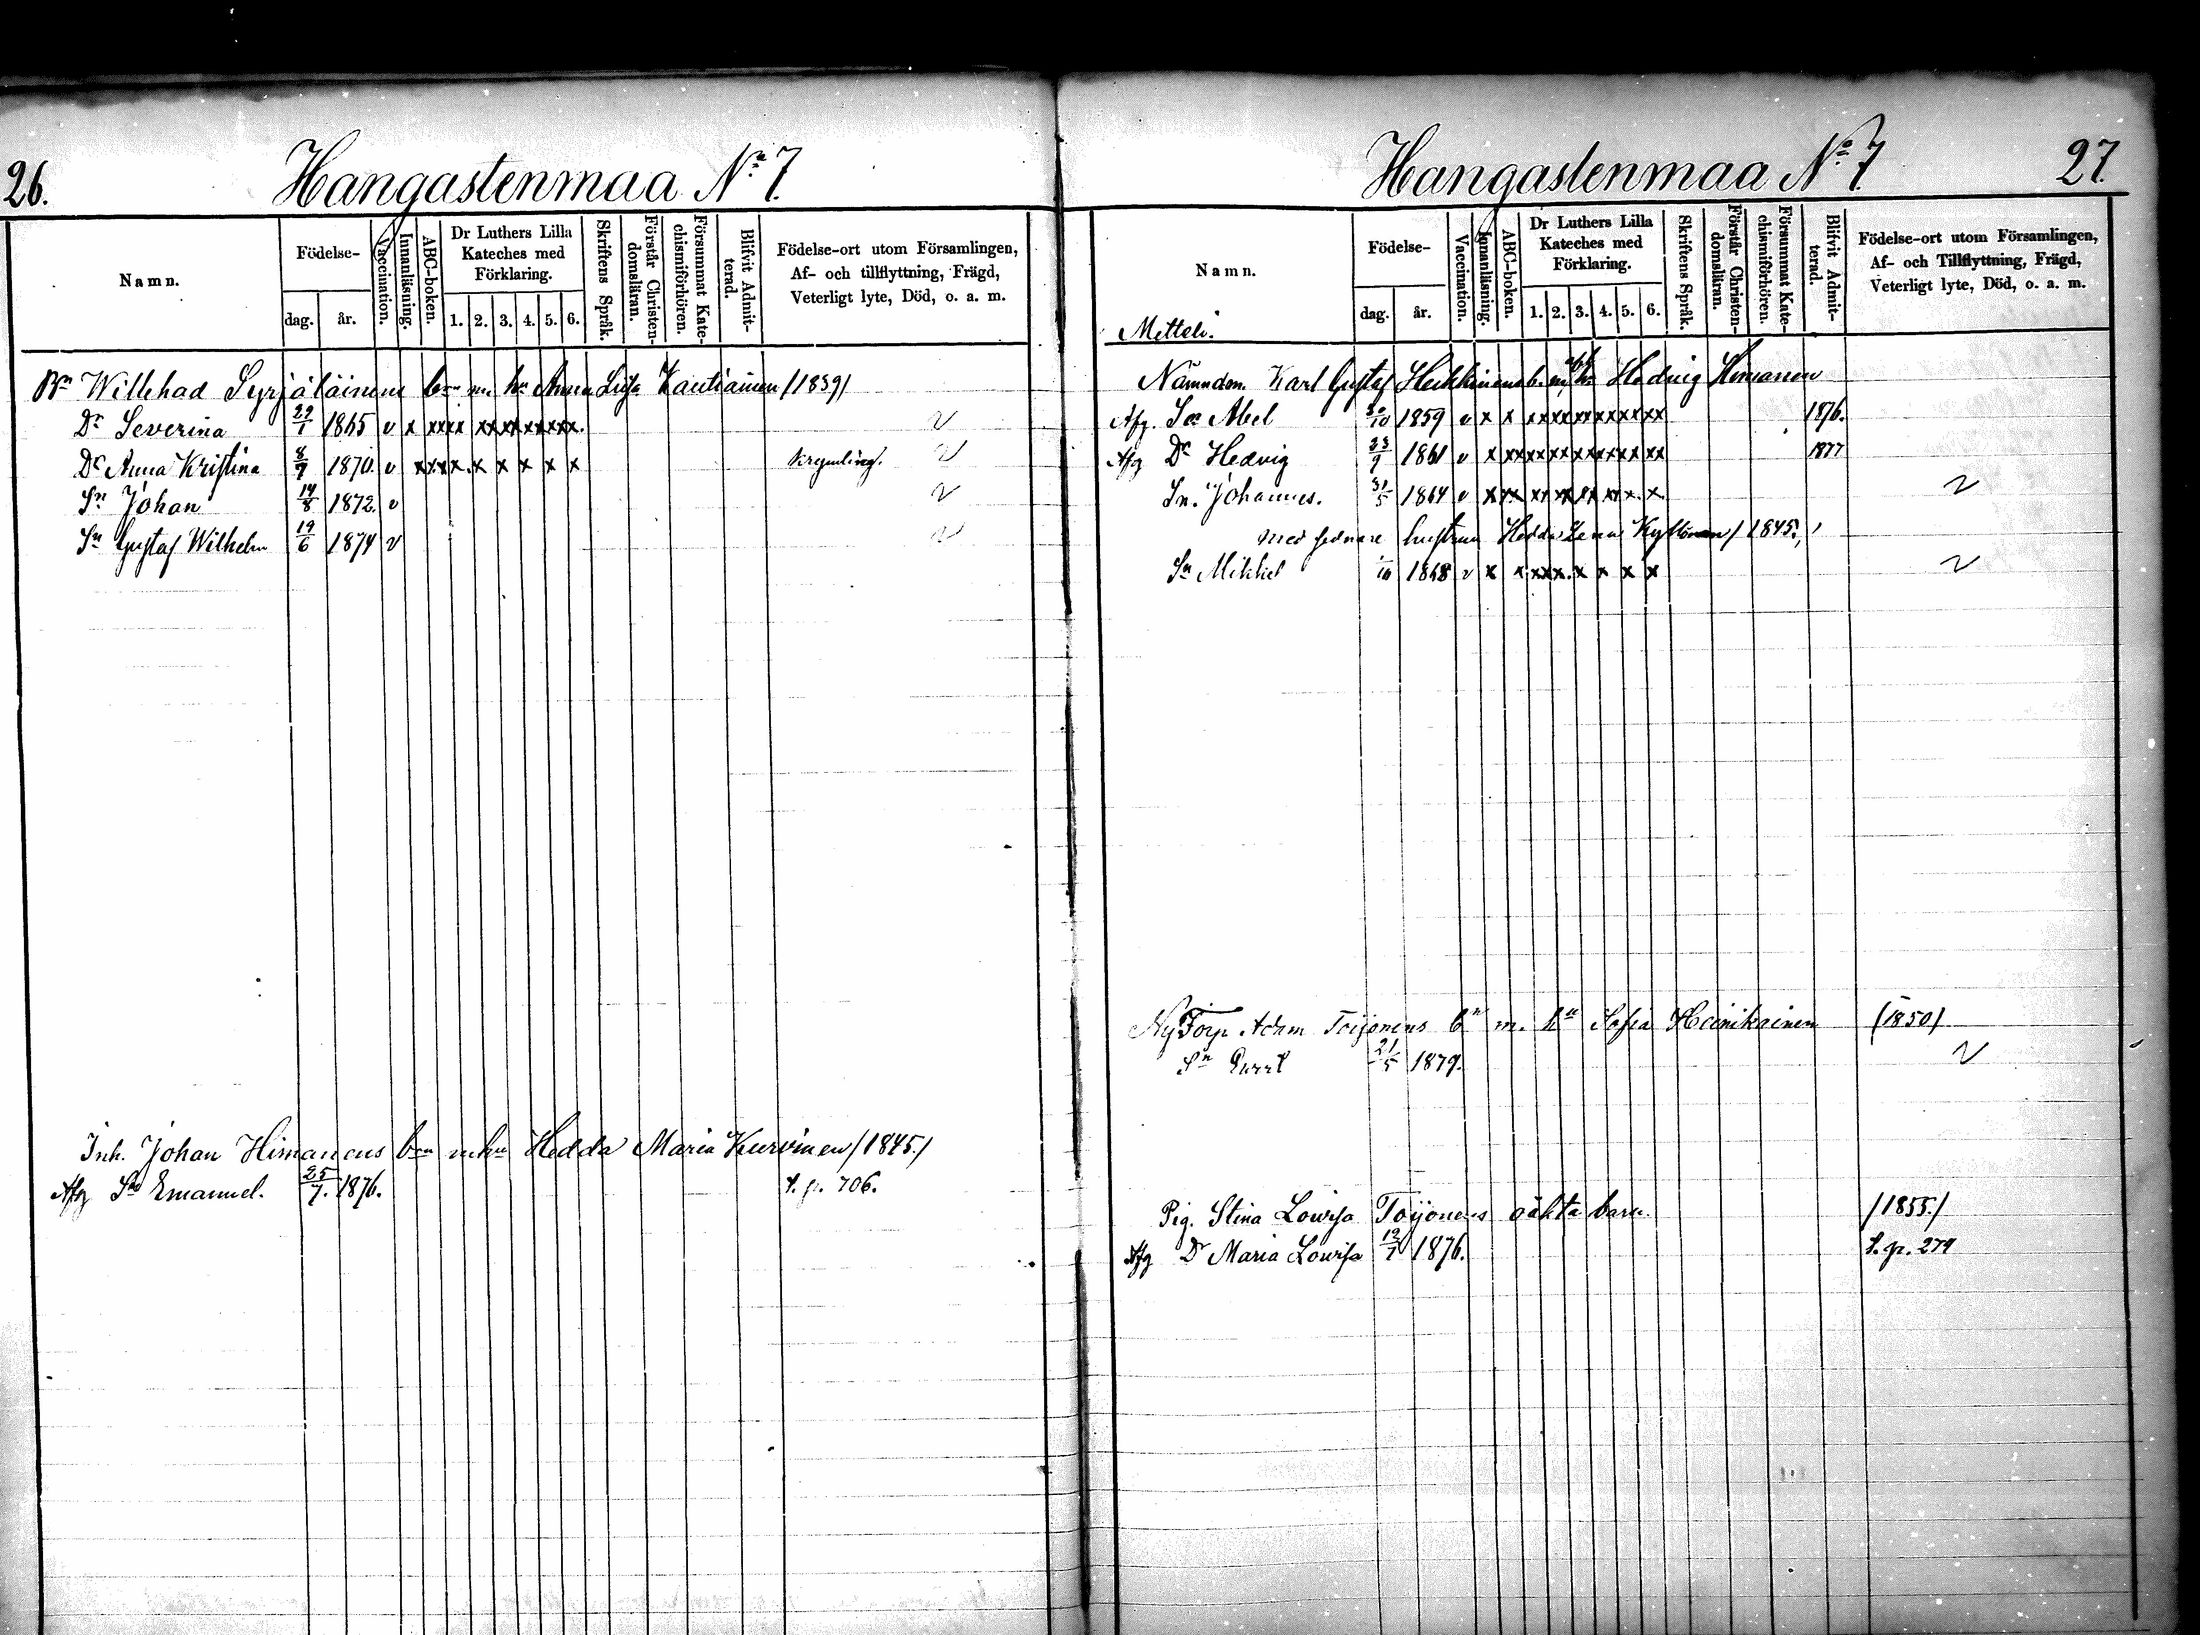 26.
Hangastenmaa No 7.
Namn.
Födelse-
dag.
år.
Vaccination.
Innanläsning.
ABC-boken.
Dr Luthers Lilla Kateches med Förklaring.
1. 2. 3. 4. 5. 6.
Skriftens Språk.
Förstår Christendomsläran.
Försummat Katechismiförhören.
Blifvit Admitterad.
Födelse-ort utom Församlingen,
Af- och tillflyttning, Frägd,
Veterligt lyte, Död, o. a. m.
Bn Willehad Syrjäläinens brn m. hn Anna Lisa Kautiainen /1839/
Dr Severina 29/1 1865 v x xxxx xxxxxxxxx.
Dr Anna Kristina 8/7 1870. v xxxx. x x x x x krympling.
Sn Johan 14/8 1872. v
Sn Gustaf Wilhelm 19/6 1874 v
Inh. Johan Himancus brn m hn Hedda Maria Kurvinen /1845./
Afg Sn Emanuel. 25/7. 1876. t. p. 706.
Hangastenmaa No 7
27.
Namn.
Födelse-
dag.
år.
Vaccination.
Innanläsning.
ABC-boken.
Dr Luthers Lilla Kateches med Förklaring.
1. 2. 3. 4. 5. 6.
Skriftens Språk.
Förstår Christendomsläran.
Försummat Katechismiförhören.
Blifvit Admitterad.
Födelse-ort utom Församlingen,
Af- och Tillflyttning, Frägd,
Veterligt lyte, Död, o. a. m.
Mitteli.
Nämndem. Karl Gustaf Heikkinens b. m. hn Hedvig Himanen
Afg. Sn Abel 30/10 1859 v x x xxxxxxxxxxxx 1876.
Afg Dr Hedvig 23/9 1861 v x xxxxxxxxxxxxx 1877
Sn. Johannes. 31/5 1864 v xxx xx xx xx xx x. x.
med sednare hustrun Hedda Lena Kyllönen /1845./
Sn Mikkel 1/10 1868 v x x xxx. x x x x
Ny Torp. Adam Toijonens bn m. hn Sofia Heinikainen (1850)
Sn 21/5 1879.
Pig. Stina Lowisa Toijonens oäkta barn. /1855./
Afg Dr Maria Lowisa 12/7 1876. t. p. 274